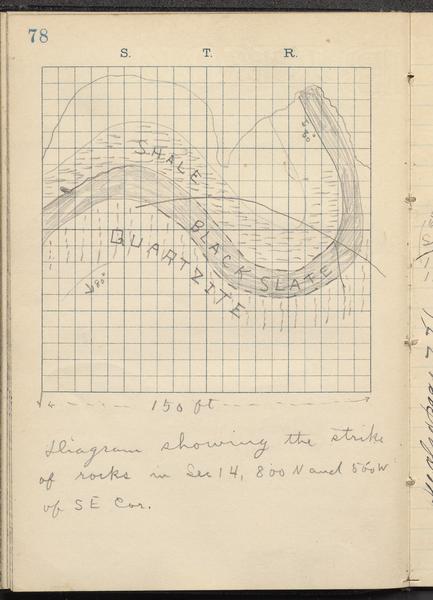 78
S. T. R.
SHALE
BLACK SLATE
QUARTZITE
80°
150 ft
Diagram showing the strike
of rocks in Sec 14, 800 N and 500 W
of SE Cor.